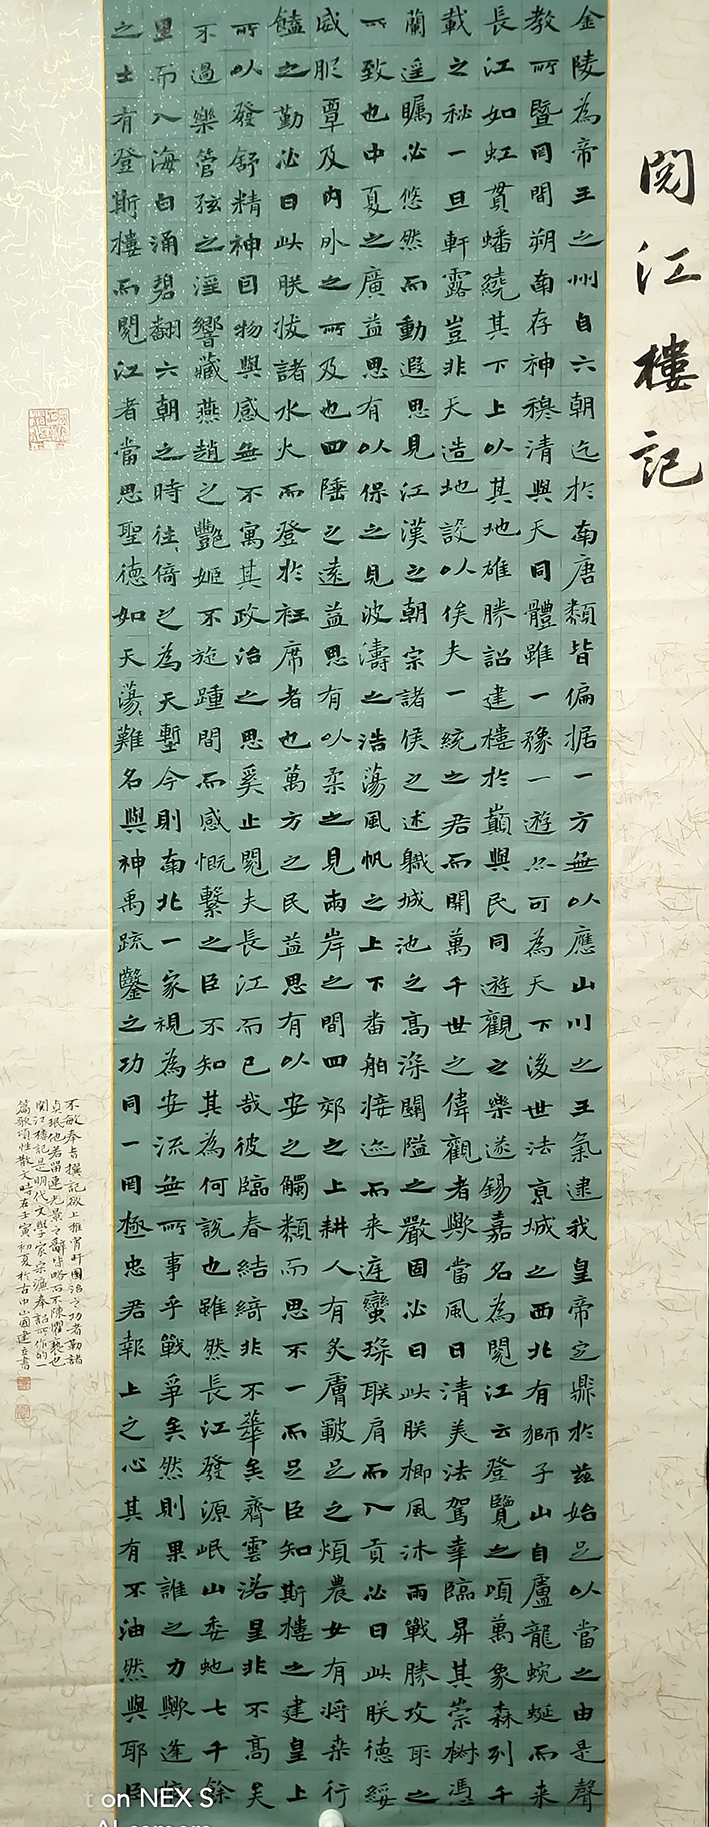 閱江樓記
金陵為帝王之州自六朝迄於南唐類皆偏据一方無以應山川之王氣逮我皇帝定鼎於茲始足以當之由是聲
教所暨罔間朔南存神穆清與天同體雖一豫一遊亦可為天下後世法京城之西北有獅子山自盧龍蜿蜒而来
長江如虹貫蟠繞其下上以其地雄勝詔建樓於巔與民同遊觀之樂遂錫嘉名為閱江云登覽之頃萬象森列千
載之秘一旦軒露豈非天造地設以俟夫一統之君而開萬千世之偉觀者歟當風日清美法駕幸臨昇其崇樹憑
蘭遥矚必悠然而動遐思見江漢之朝宗諸侯之述職城池之高深關隘之嚴固必曰此朕櫛風沐雨戰勝攻取之
所致也中夏之廣益思有以保之見波濤之浩蕩風帆之上下番舶接迹而来庭蠻琛联肩而入貢必曰此朕德綏
威服覃及内外之所及也四陲之遠益思有以柔之見兩岸之間四郊之上耕人有炙膚皸足之煩農女有将桑行
饁之勤必曰此朕拔諸水火而登於衽席者也萬方之民益思有以安之觸類而思不一而足臣知斯樓之建皇上
所以發舒精神因物興感無不寓其政治之思奚止閱夫長江而已哉彼臨春結綺非不華矣齊雲落星非不高矣
不過樂管弦之淫響藏燕趙之豔姬不旋踵間而感慨繫之臣不知其為何說也雖然長江發源岷山委虵七千餘
里而入海白涌碧翻六朝之時往々倚之為天塹今則南北一家視為安流無所事乎戰爭矣然則果誰之力歟逢掖
之士有登斯樓而閱江者當思聖德如天蕩々難名與神禹疏鑿之功同一罔極忠君報上之心其有不油然與耶臣
不敏奉旨撰記欲上推宵旰圖治之功者勒諸
貞珉他若留連光景之辭皆略而不陳懼褻也
閱江樓記是明代文學家宋濂奉詔所作的一
篇歌頌性散文時在壬寅初夏於古中山國建立書
t on NEX S
AI camera